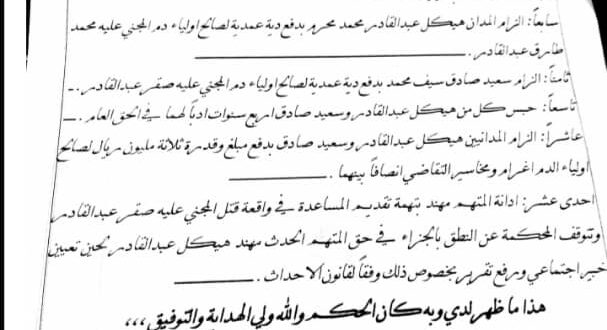 سابعاً: الزام المدان هيكل عبدالقادر محمد محرم بدفع دية عمدية لصالح اولياء دم المجني عليه محمد
طارق عبدالقادر .
ثامناً: الزام سعيد صادق سيف محمد بدفع دية عمدية لصالح اولياء دم المجني عليه صقر عبدالقادر .
تاسعاً: حبس كل من هيكل عبدالقادر وسعيد صادق اربع سنوات ادباً لهما في الحق العام .
عاشراً: الزام المدانيين هيكل عبدالقادر وسعيد صادق بدفع مبلغ وقدره ثلاثة مليون ريال لصالح
اولياء الدم اغرام ومخاسير التقاضي انصافاً بينهما .
احدى عشر: ادانة المتهم مهند بتهمة تقديم المساعدة في واقعة قتل المجني عليه صقر عبدالقادر
وتتوقف المحكمة عن النطق بالجزاء في حق المتهم الحدث مهند هيكل عبدالقادر لحين تعيين
خبير اجتماعي ورفع تقرير بخصوص ذلك وفقاً لقانون الاحداث .
هذا ما ظهر لدي وبه كان الحكم والله ولي الهداية والتوفيق ،،،